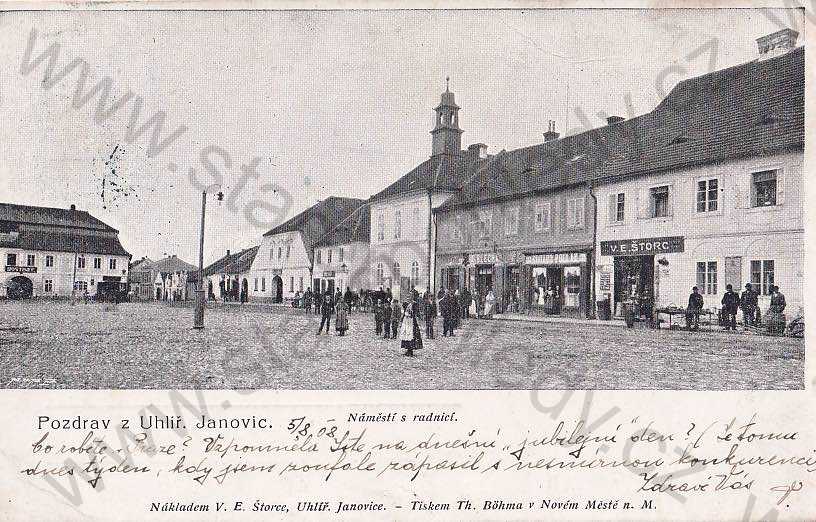 V. E. ŠTORC
Pozdrav z Uhlíř. Janovic.
5/8 02
Náměstí s radnicí.
Co robíte v Praze? Vzpomněla jste na dnešní „jubilejní" den? (Je tomu
dnes týden, kdy jsem zoufale zápasil s nesmírnou konkurencí
Zdraví Vás
Nákladem V. E. Štorce, Uhlíř. Janovice. – Tiskem Th. Böhma v Novém Městě n. M.